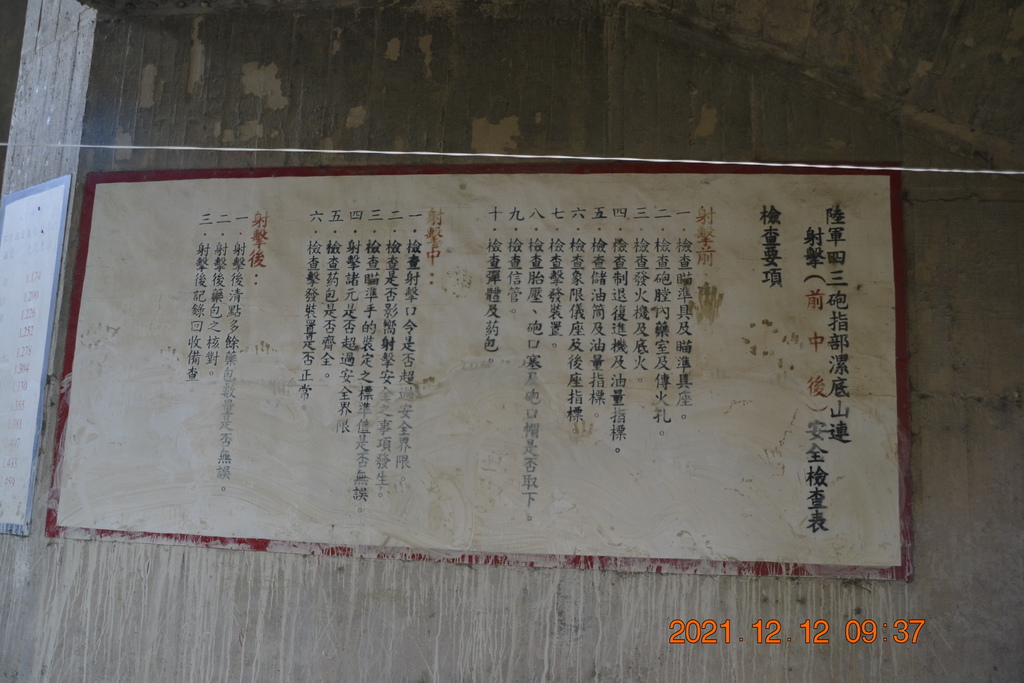 陸軍四三砲指部漯底山連
射擊(前 中 後)安全檢查表
檢查要項
射擊前:
一．檢查瞄準具及瞄準具座。
二．檢查砲膛內藥室及傳火孔。
三．檢查發火機及底火。
四．檢查制退復進機及油量指標。
五．檢查儲油筒及油量指標。
六．檢查象限儀座及後座指標。
七．檢查擊發裝置。
八．檢查胎壓、砲口塞及砲口帽是否取下。
九．檢查信管。
十．檢查彈體及葯包。
射擊中:
一．檢查射擊口令是否超過安全界限。
二．檢查是否影嚮射擊安全之事項發生。
三．檢查瞄準手的裝定之標準值是否無誤。
四．射擊諸元是否超過安全界限
五．檢查葯包是否齊全。
六．檢查擊發裝置是否正常。
射擊後:
一．射擊後清點多餘藥包數量是否無誤。
二．射擊後藥包之核對。
三．射擊後記錄回收備查
2021.12.12 09:37